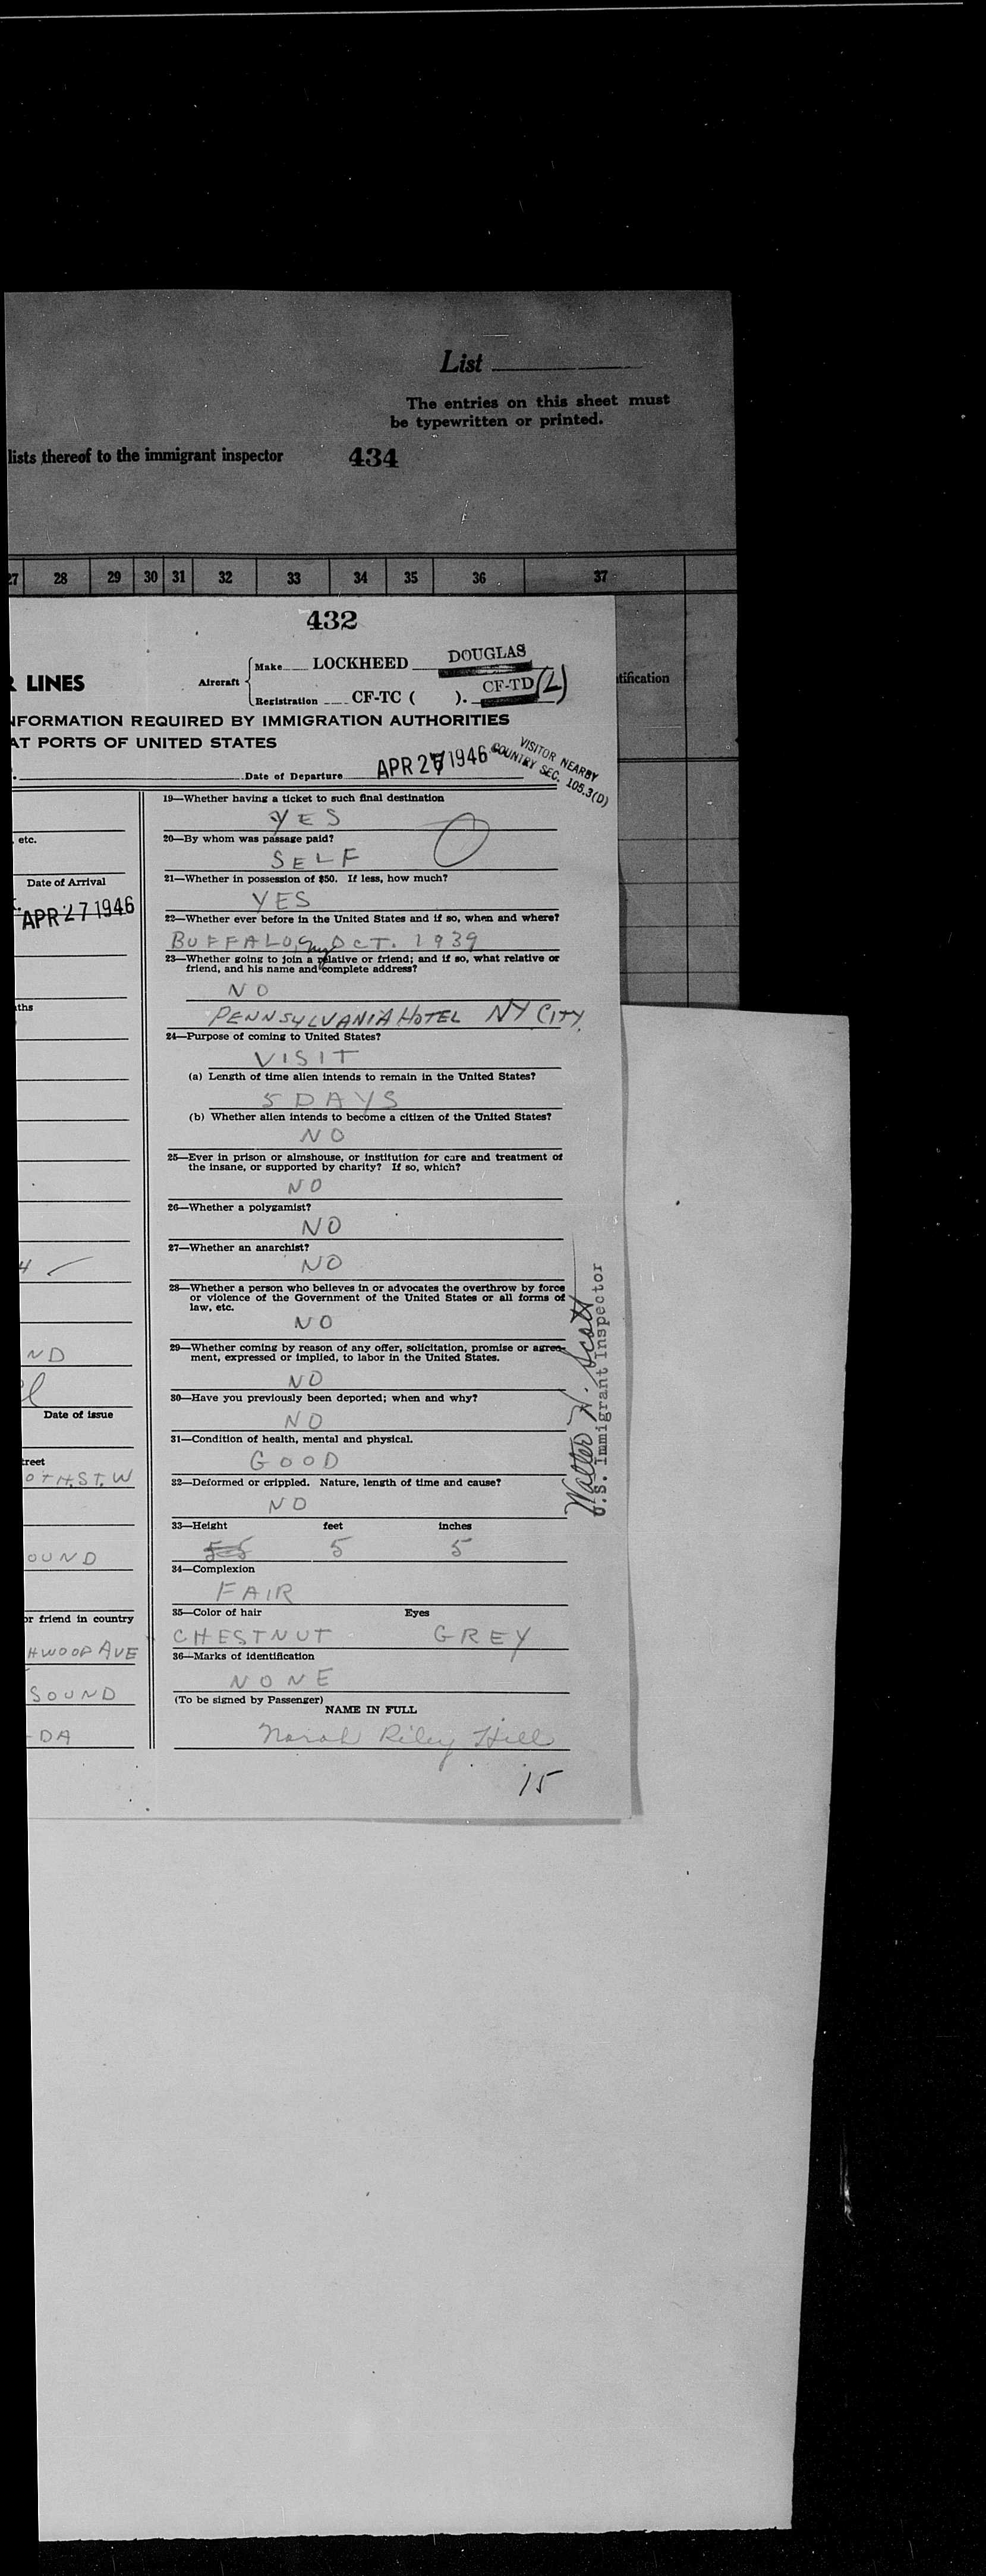 List
The entries on this sheet must
be typewritten or printed.
lists thereof to the immigrant inspector 434
27 28 29 30 31 32 33 34 35 36 37
432
Aircraft Make LOCKHEED DOUGLAS
Registration CF-TC ( ). CF-TD (L)
LINES
tification
INFORMATION REQUIRED BY IMMIGRATION AUTHORITIES
AT PORTS OF UNITED STATES
Date of Departure APR 27 1946
VISITOR NEARBY
COUNTRY SEC. 105.3(D)
etc.
Date of Arrival
APR 27 1946
ths
4
ND
Date of issue
treet
0TH.ST.W
OUND
or friend in country
HWOOD AVE
SOUND
DA
19—Whether having a ticket to such final destination
YES
20—By whom was passage paid?
SELF
21—Whether in possession of $50. If less, how much?
YES
22—Whether ever before in the United States and if so, when and where?
BUFFALO, NY OCT. 1939
23—Whether going to join a relative or friend; and if so, what relative or
friend, and his name and complete address?
NO
PENNSYLVANIA HOTEL NY CITY.
24—Purpose of coming to United States?
VISIT
(a) Length of time alien intends to remain in the United States?
5 DAYS
(b) Whether alien intends to become a citizen of the United States?
NO
25—Ever in prison or almshouse, or institution for care and treatment of
the insane, or supported by charity? If so, which?
NO
26—Whether a polygamist?
NO
27—Whether an anarchist?
NO
28—Whether a person who believes in or advocates the overthrow by force
or violence of the Government of the United States or all forms of
law, etc.
NO
29—Whether coming by reason of any offer, solicitation, promise or agree-
ment, expressed or implied, to labor in the United States.
NO
30—Have you previously been deported; when and why?
NO
31—Condition of health, mental and physical.
GOOD
32—Deformed or crippled. Nature, length of time and cause?
NO
33—Height feet inches
5 5
34—Complexion
FAIR
35—Color of hair Eyes
CHESTNUT GREY
36—Marks of identification
NONE
(To be signed by Passenger)
NAME IN FULL
Norah Riley Hill
15
Walter H. Scott
U.S. Immigrant Inspector